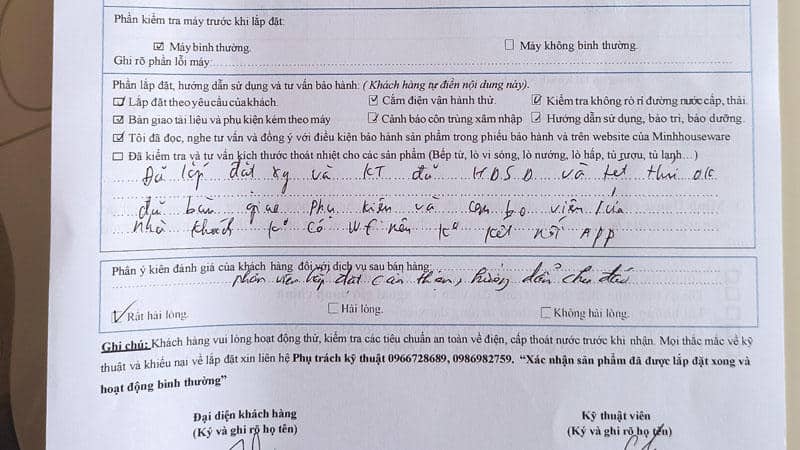 Phần kiểm tra máy trước khi lắp đặt:
☑ Máy bình thường. ☐ Máy không bình thường.
Ghi rõ phần lỗi máy:
Phần lắp đặt, hướng dẫn sử dụng và tư vấn bảo hành: ( Khách hàng tự điền nội dung này).
☑ Lắp đặt theo yêu cầu của khách. ☑ Cắm điện vận hành thử. ☑ Kiểm tra không rò rỉ đường nước cấp, thải.
☑ Bàn giao tài liệu và phụ kiện kèm theo máy ☑ Cảnh báo côn trùng xâm nhập ☑ Hướng dẫn sử dụng, bảo trì, bảo dưỡng.
☑ Tôi đã đọc, nghe tư vấn và đồng ý với điều kiện bảo hành sản phẩm trong phiếu bảo hành và trên website của Minhhouseware
☐ Đã kiểm tra và tư vấn kích thước thoát nhiệt cho các sản phẩm (Bếp từ, lò vi sóng, lò nướng, lò hấp, tủ rượu, tủ lạnh…)
Đã lắp đặt xg và KT đủ HDSD và test thử OK
đã bàn giao phụ kiện và com bo viên rửa
nhà khách k° có wf nên k° kết nối APP
Phần ý kiến đánh giá của khách hàng đối với dịch vụ sau bán hàng:
nhân viên lắp đặt cẩn thận, hướng dẫn chu đáo
☑ Rất hài lòng. ☐ Hài lòng. ☐ Không hài lòng.
Ghi chú: Khách hàng vui lòng hoạt động thử, kiểm tra các tiêu chuẩn an toàn về điện, cấp thoát nước trước khi nhận. Mọi thắc mắc về kỹ
thuật và khiếu nại về lắp đặt xin liên hệ Phụ trách kỹ thuật 0966728689, 0986982759. “Xác nhận sản phẩm đã được lắp đặt xong và
hoạt động bình thường”
Đại diện khách hàng Kỹ thuật viên
(Ký và ghi rõ họ tên) (Ký và ghi rõ họ tên)